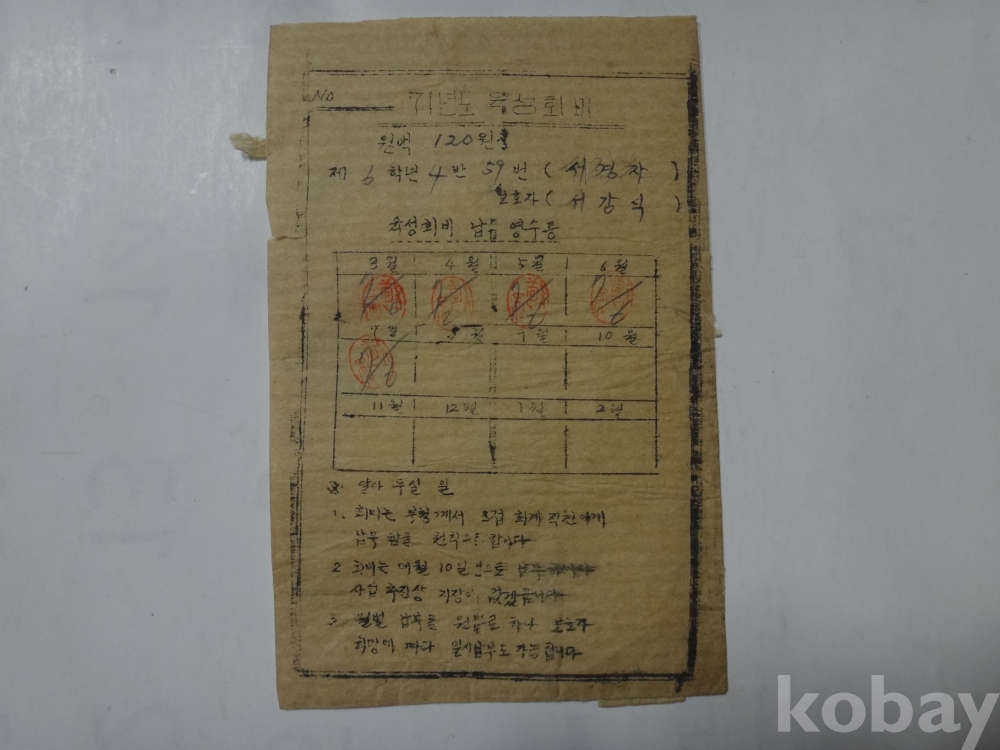 No
71년도 육성회비
월액 120원
제 6 학년 4 반 59 번 ( 서경자 )
보호자 ( 서강식 )
육성회비 납입 영수증
3월 4월 5월 6월
7월 8월 9월 10월
11월 12월 1월 2월
※ 알아 두실 일
1. 회비는 직접 회계 직원에게
납부 함을 원칙으로 합니다
2. 회비는 매월 10일
사업 추진상 지장이 없겠습니다
3. 월별 납부를 원칙으로 하나 보호자
희망에 따라 일시납부도 가능합니다
kobay